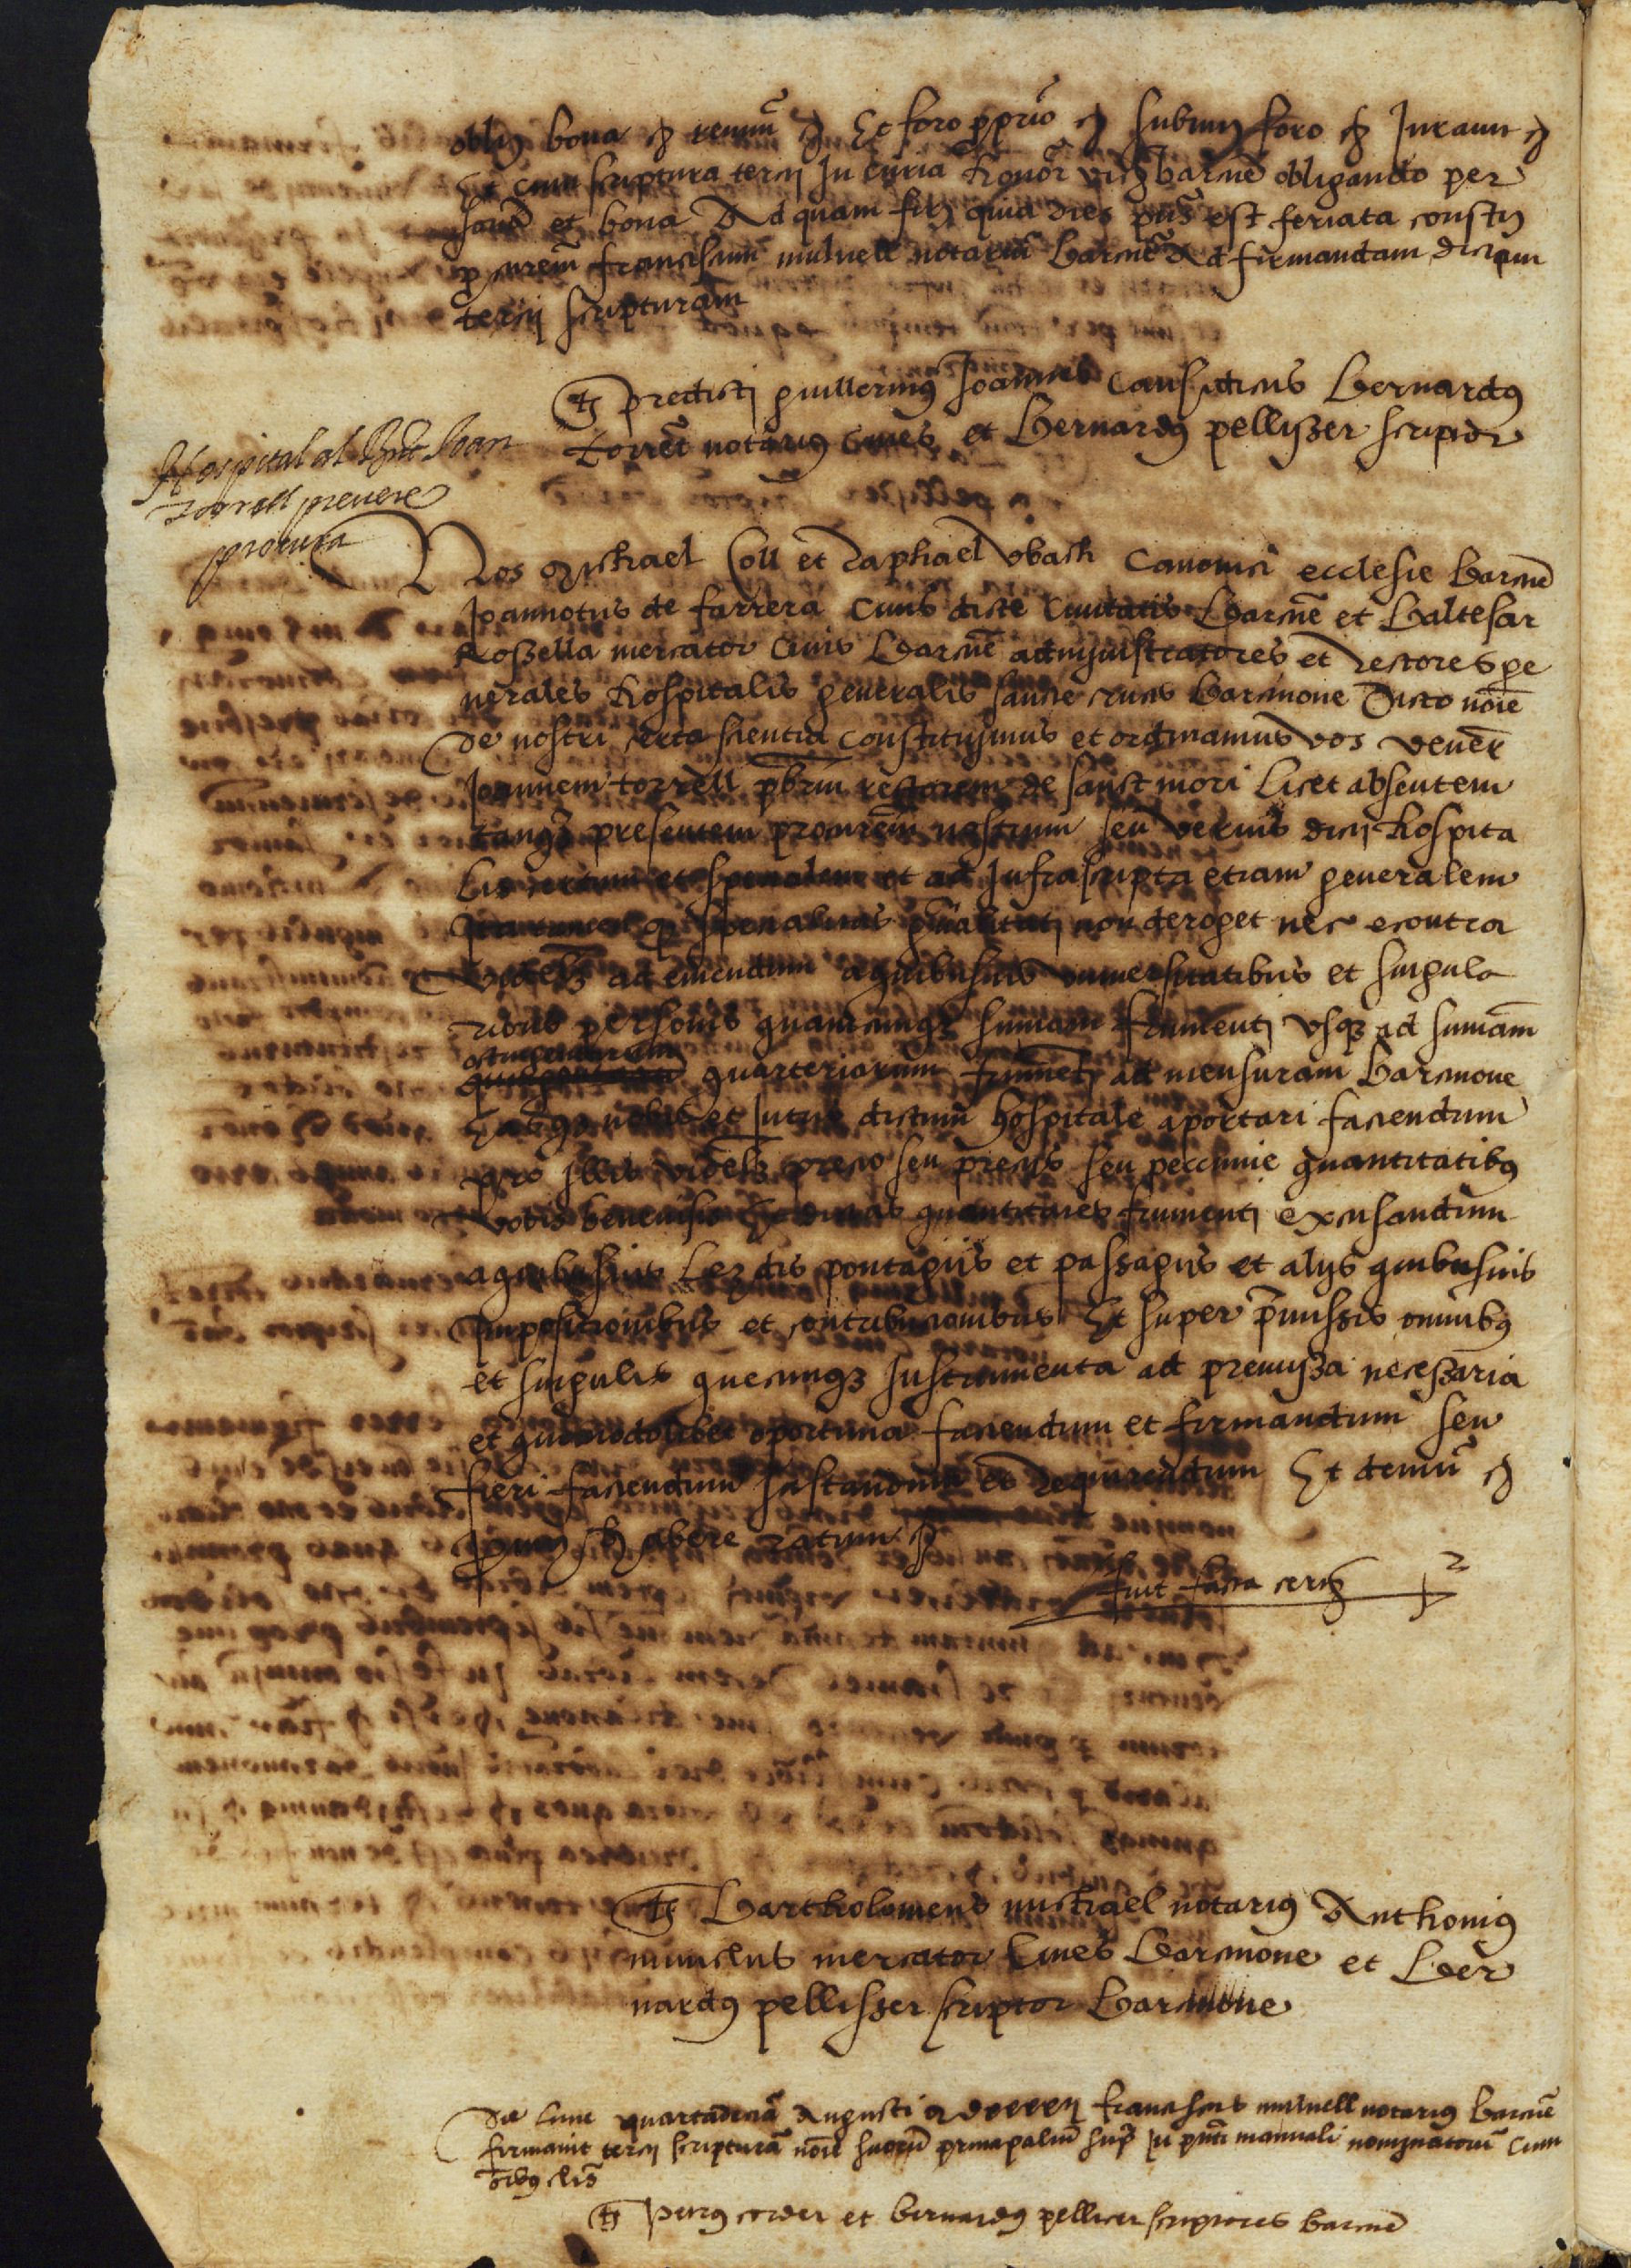 oblig bona etc renun etc Et foro pprio etc submitt foro etc Juraun etc
Et cum scriptura tercij In curia honor vicarij barne obligando per
sonas et bona Ad quam fir quia dies pns est feriata constit
procurem franciscum mulnell notariu barcne Ad firmandam dictam
tercij scripturam
Ts predicti guillermus Joannes Causidicus Bernardus
torrent notarius cives et Bernardus pellisser scriptor
Hospital al Rnt Joan
torrell prevere
procura
Nos Michael Coll et Raphael Ubach Canonici ecclesie barcne
Joannotus de farrera Civis dicte Civitatis barcne et Baltesar
Rossella mercator Civis Barcne administratores et rectores ge
nerales hospitalis generalis sancte crucis barcinone Dicto noie
De nostri certa scientia constituimus et ordinamus vos vener
Joannem torrell pbrum rectorem de sanct mori licet absentem
tanqz presentem procurem nostrum seu verius dicti hospita
lis certum et specialem et ad Infrascripta etiam generalem
Ita tamen qz specialitas gnalitati non deroget nec econtra
Videlz ad emendum a quibusvis universitatibus et singula
ribus personis quamcunqz sumam frumenti usqz ad sumam
quarteriarum frumeti ad mensuram barcinone
Easqz nobis et Intus dictum hospitale aportari faciendum
pro illis videlz precio seu precijs seu peccunie quantitatibus
vobis benevisis Et dictas quantitates frumenti excusandum
a quibusvis lezdis pontagiis et passagiis et alijs quibusvis
Imposicionibus et contribucionibus Et super premissis omnibus
et singulis quecunqz Instrumenta ad premissa necessaria
et quomodolibet oportuna faciendum et firmandum seu
fieri faciendum Instandum et Requirendum Et demu etc
habere ratum etc
fuit facta
Ts Bartholomeus michael notarius Anthonius
mercator Cives Barcinone et Ber
nardus pellisser scriptor Barcinone
Die lune quartadecia Augusti franciscus mulnell notarius barcne
firmavit tercij scriptura noie suoru principaliu supra In pnti manuali nominatoru Cum
oibus clis
Ts Petrus corder et bernardus pellicer scriptores barcne